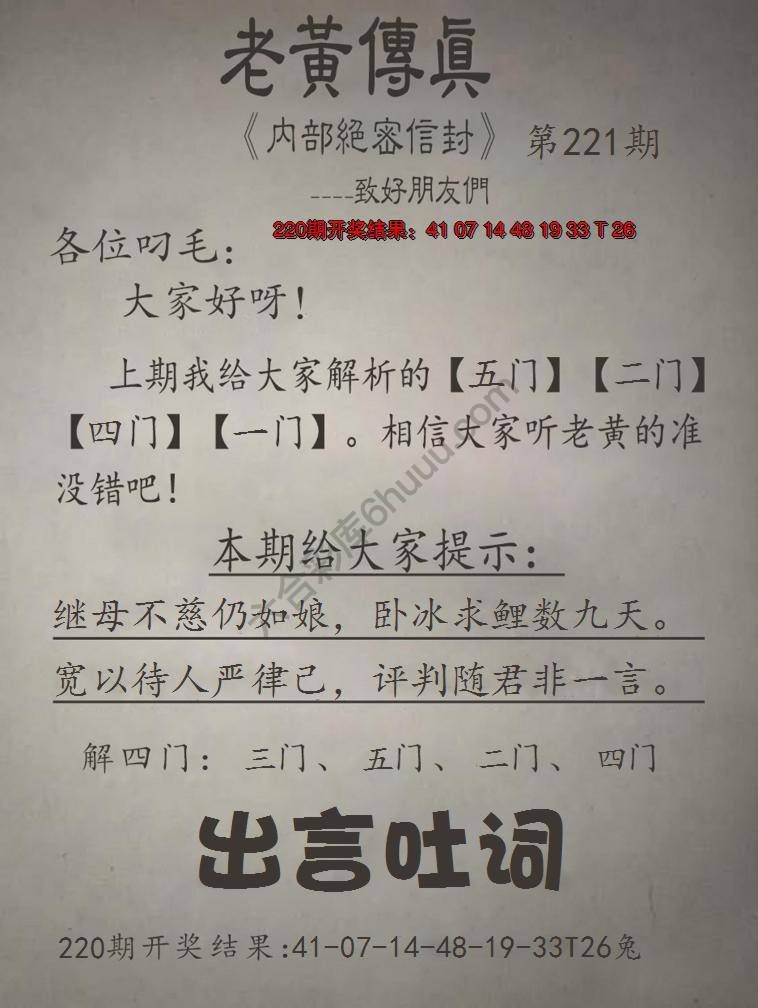 老黃傳眞
《内部絕密信封》 第221期
----致好朋友們
220期开奖结果：41 07 14 48 19 33 T 26
各位叼毛：
大家好呀！
上期我给大家解析的【五门】【二门】
【四门】【一门】。相信大家听老黄的准
没错吧！
本期给大家提示：
继母不慈仍如娘，卧冰求鲤数九天。
宽以待人严律己，评判随君非一言。
解四门：三门、五门、二门、四门
出言吐词
220期开奖结果:41-07-14-48-19-33T26兔
六合彩库6huuu.com